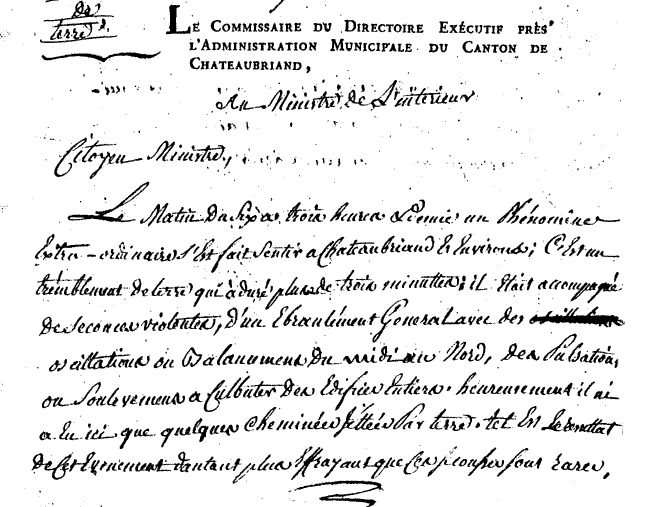 De
terre
LE COMMISSAIRE DU DIRECTOIRE EXÉCUTIF PRÈS
L'ADMINISTRATION MUNICIPALE DU CANTON DE
CHATEAUBRIAND,
Au Ministre de L'intérieur
Citoyen Ministre,
Le Matin du Six a trois heures et demie un Phénomène
Extra-ordinaire s'Est fait Sentir a Chateaubriand Et Environs; C'Est un
trémblement de terre qui à duré plus de trois minuttes; il était accompagné
de Secousses violentes, d'un Ebranlément General avec des
oscillations ou Balancemens Du midi au Nord, des Pulsations
ou Soulevemens a Culbuter Des Edifices Entiers. heureusement il n'y
a Eu ici que quelques Cheminées Jettées Par terre. tel Est Le resultat
de Cet Evenement d'autant plus Effrayant que Ces Sont rares.